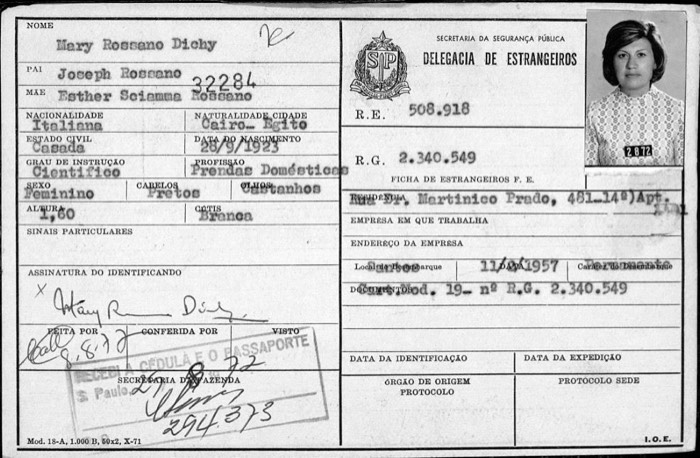 NOME
Mary Rossano Dichy
PAI
Joseph Rossano
32284
MÃE
Esther Sciamma Rossano
NACIONALIDADE NATURALIDADE CIDADE
Italiana Cairo- Egito
ESTADO CIVIL DATA DO NASCIMENTO
Casada 28/9/1923
GRAU DE INSTRUÇÃO PROFISSÃO
Cientifico Prendas Domésticas
SEXO CABELOS OLHOS
Feminino Pretos Castanhos
ALTURA CÚTIS
1,60 Branca
SINAIS PARTICULARES
ASSINATURA DO IDENTIFICANDO
x Mary Dichy
FEITA POR CONFERIDA POR VISTO
8.8.72
RECEBI A CÉDULA E O PASSAPORTE
S. Paulo,
SECRETARIA DA FAZENDA
294373
Mod. 18-A, 1.000 B, 50x2, X-71
SECRETARIA DA SEGURANÇA PÚBLICA
DELEGACIA DE ESTRANGEIROS
SP
R.E. 508.918
R.G. 2.340.549
FICHA DE ESTRANGEIROS F. E.
2 8 72
RESIDÊNCIA
Rua Dr. Martinico Prado, 481-14º)Apt.
EMPRESA EM QUE TRABALHA
ENDEREÇO DA EMPRESA
Local de Desembarque DATA
Santos 1957 Permanente
DOCUMENTOS
Cart. Mod. 19- nº R.G. 2.340.549
DATA DA IDENTIFICAÇÃO DATA DA EXPEDIÇÃO
ÓRGÃO DE ORIGEM PROTOCOLO SEDE
PROTOCOLO
I.O.E.